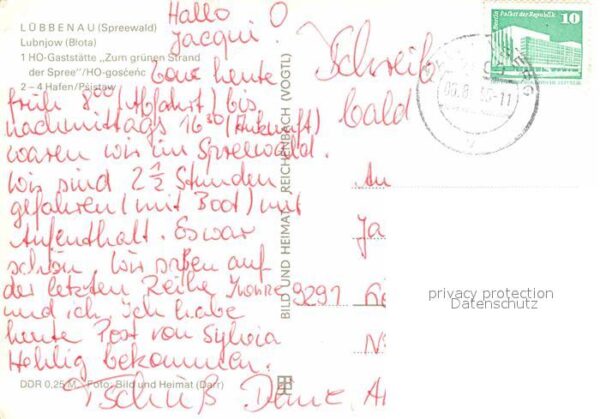 LÜBBENAU (Spreewald)
Lubnjow (Błota)
1 HO-Gaststätte „Zum grünen Strand
der Spree"/HO-gosćenc
2 – 4 Hafen/Pśistaw
Hallo
Jacqui!
heute
früh 8⁰⁰ (Abfahrt) bis
nachmittags 16³⁰ (Ankunft)
waren wir im Spreewald.
Wir sind 2 ½ Stunden
gefahren (mit Boot) mit
Aufenthalt. Es war
schön. Wir saßen auf
der letzten Reihe,
und ich. Ich habe
heute Post von Sylvia
bekommen.
Tschüß Deine
Schreib
bald
DDR 0,25 M Foto: Bild und Heimat (Darr)
BILD UND HEIMAT REICHENBACH (VOGTL)
Berlin Palast der Republik
10
An
Ja
9291
privacy protection
Datenschutz